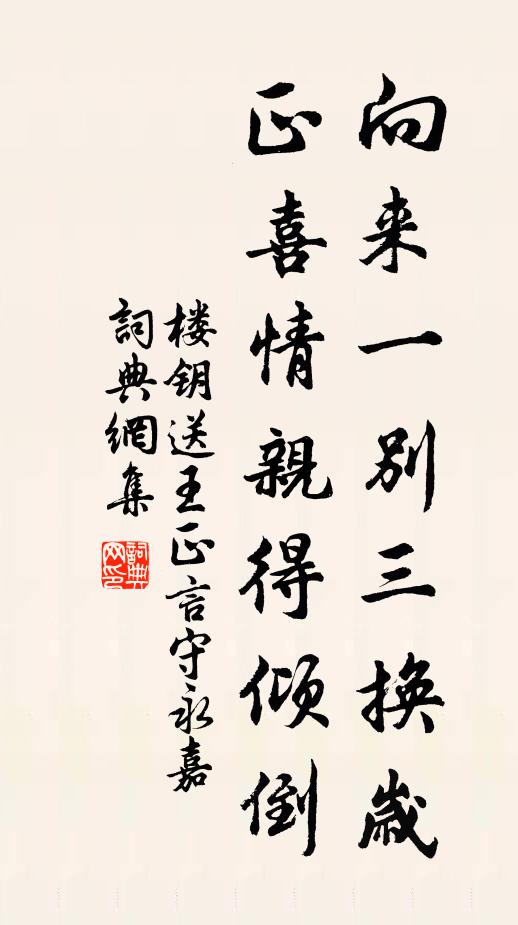 向来一别三换歲
正喜情親得倾倒
楼钥送王正言守永嘉
詞典網集
詞典網印